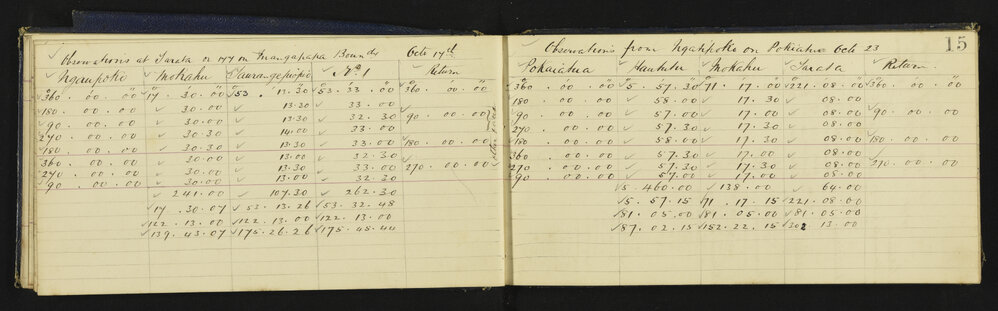 Observations at Tarata or 177 on Mangapapa Bounds Octr 17th
Ngaupokio Mokahu Taurangepiopio No 1 Return
360 . 00 . 00 17 . 30 . 00 53 . 13 . 30 53 . 33 . 00 360 . 00 . 00
180 . 00 . 00 30 . 00 13 . 30 33 . 00
90 . 00 . 00 30 . 00 13 . 30 32 . 30 90 . 00 . 00
270 . 00 . 00 30 . 30 14 . 00 33 . 00
180 . 00 . 00 30 . 30 13 . 30 33 . 00 180 . 00 . 00
360 . 00 . 00 30 . 00 13 . 00 32 . 30
270 . 00 . 00 30 . 00 13 . 30 33 . 00 270 . 00 . 00
90 . 00 . 00 30 . 00 13 . 00 32 . 30
241 . 00 107 . 30 262 . 30
17 . 30 . 07 53 . 13 . 26 53 . 32 . 48
122 . 13 . 00 122 . 13 . 00 122 . 13 . 00
139 . 43 . 07 175 . 26 . 26 175 . 45 . 44
15
Observations from Ngatipotio on Pokiahua Octr 23
Pokaiahua Haututu Mokahu Tarata Return
360 . 00 . 00 5 . 57 . 30 71 . 17 . 00 221 . 08 . 00 360 . 00 . 00
180 . 00 . 00 58 . 00 17 . 30 08 . 00
90 . 00 . 00 57 . 00 17 . 30 08 . 00 90 . 00 . 00
270 . 00 . 00 57 . 30 17 . 30 08 . 00
180 . 00 . 00 58 . 00 17 . 30 08 . 00 180 . 00 . 00
360 . 00 . 00 57 . 30 17 . 00 08 . 00
270 . 00 . 00 57 . 30 17 . 30 08 . 00 270 . 00 . 00
90 . 00 . 00 57 . 00 17 . 00 08 . 00
5 . 460 . 00 138 . 00 64 . 00
5 . 57 . 15 71 . 17 . 15 221 . 08 . 00
81 . 05 . 00 81 . 05 . 00 81 . 05 . 00
87 . 02 . 15 152 . 22 . 15 302 13 . 00